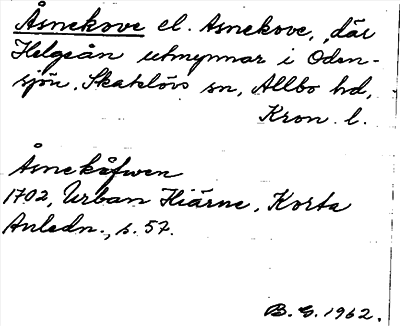 Åsnekove el. Asnekove, där
Helgeån utmynnar i Oden-
sjön. Skatelövs sn, Allbo hd,
Kron. l.
Åsnekåfwen
1702, Urban Hiärne, Korta
Anledn., s. 57.
B. G. 1962.